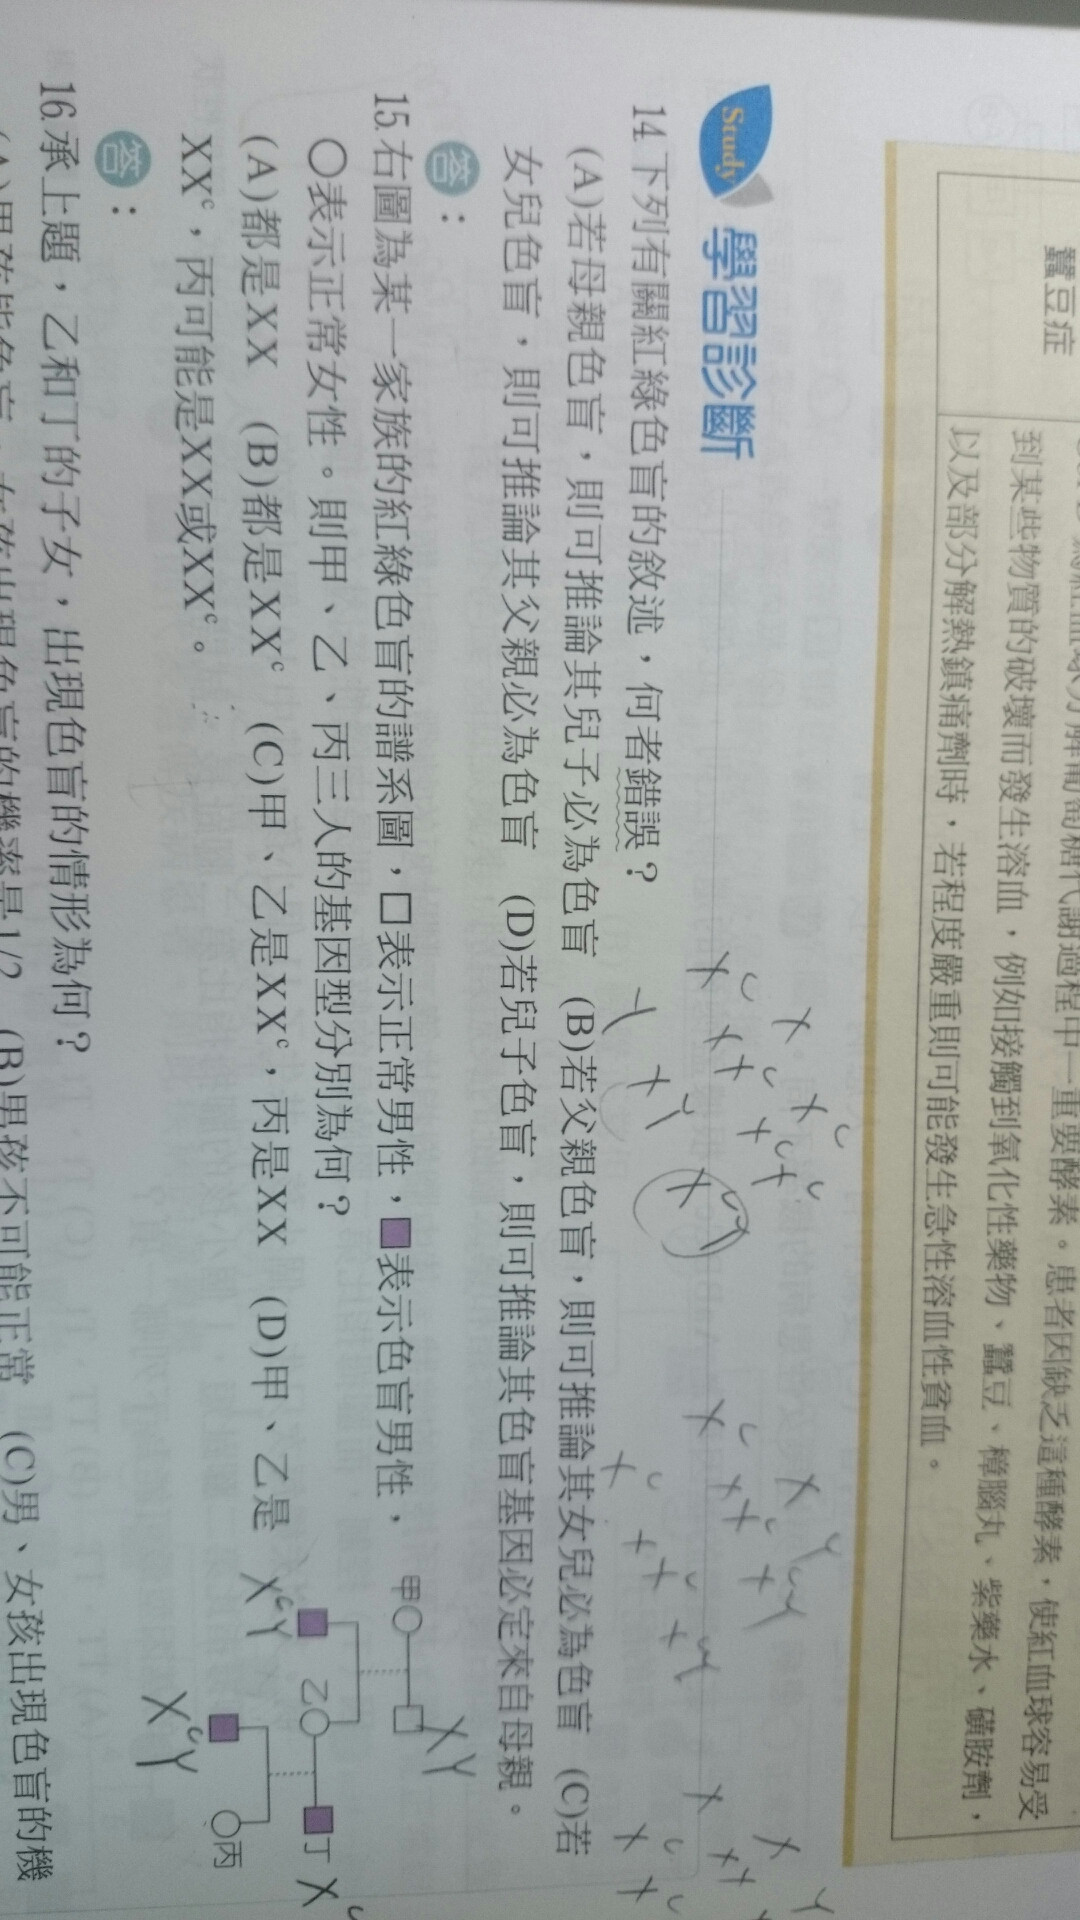 蠶豆症
到某些物質的破壞而發生溶血，例如接觸到氧化性藥物、蠶豆、樟腦丸、紫藥水、磺胺劑，
以及部分解熱鎮痛劑時，若程度嚴重則可能發生急性溶血性貧血。
Study 學習診斷
14.下列有關紅綠色盲的敘述，何者錯誤？
(A)若母親色盲，則可推論其兒子必為色盲 (B)若父親色盲，則可推論其女兒必為色盲 (C)若
女兒色盲，則可推論其父親必為色盲 (D)若兒子色盲，則可推論其色盲基因必定來自母親。
答：
15.右圖為某一家族的紅綠色盲的譜系圖，□表示正常男性，■表示色盲男性，
○表示正常女性。則甲、乙、丙三人的基因型分別為何？
(A)都是XX (B)都是XXᶜ (C)甲、乙是XXᶜ，丙是XX (D)甲、乙是
XXᶜ，丙可能是XX或XXᶜ。
甲
XY
乙
丁
XᶜY
Xᶜ
丙
XᶜY
答：
16.承上題，乙和丁的子女，出現色盲的情形為何？
(A)男孩皆色盲，女孩出現色盲的機率是1/2 (B)男孩不可能正常 (C)男、女孩出現色盲的機